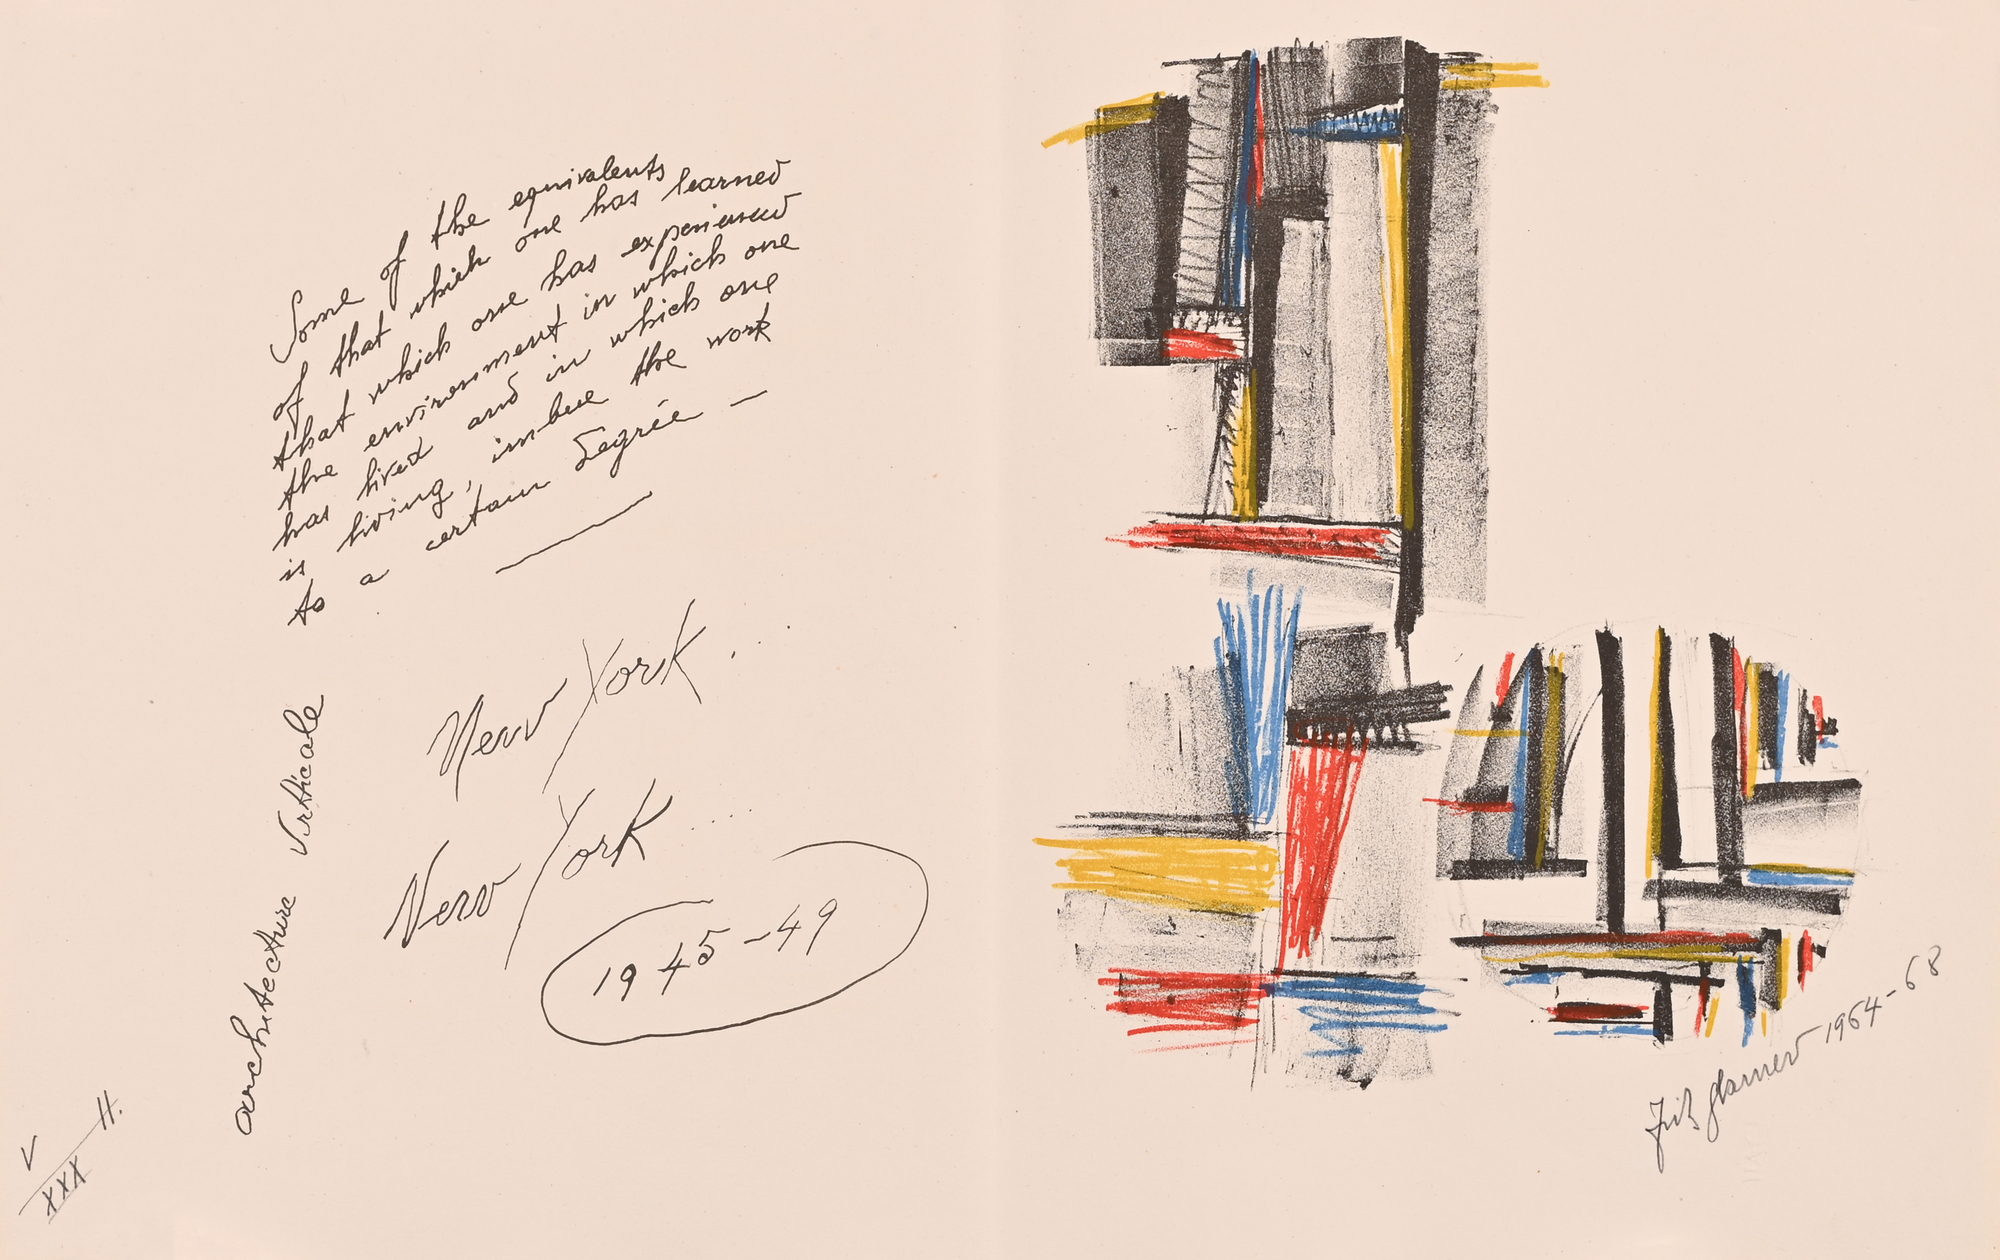 Some of the equivalents
of that which one has learned
that which one has experienced
the environment in which one
has lived and in which one
is living, imbue the work
to a certain degrée —
New York ...
New York ....
1945-49
architecture verticale
V
XXX
H.
Fritz Glarner 1964-68